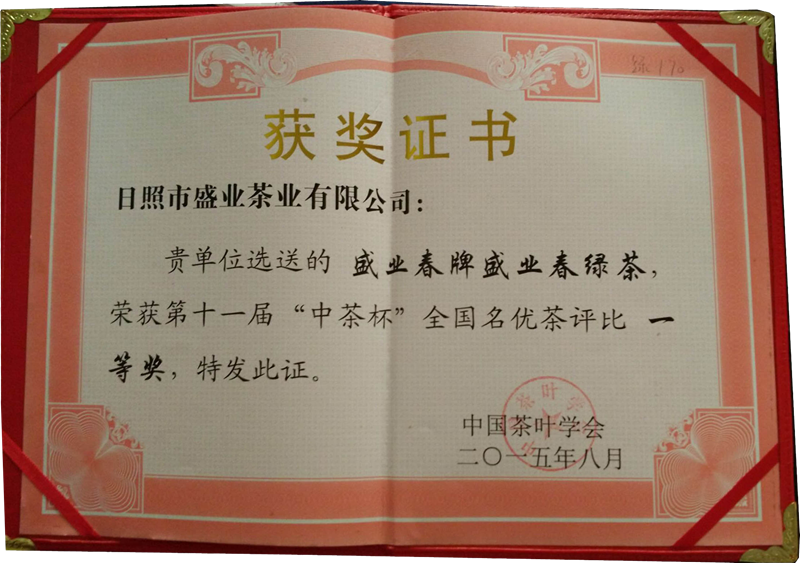 绿170
获奖证书
日照市盛业茶业有限公司：
贵单位选送的 盛业春牌盛业春绿茶，
荣获第十一届“中茶杯”全国名优茶评比 一
等奖，特发此证。
中国茶叶学会
二〇一五年八月